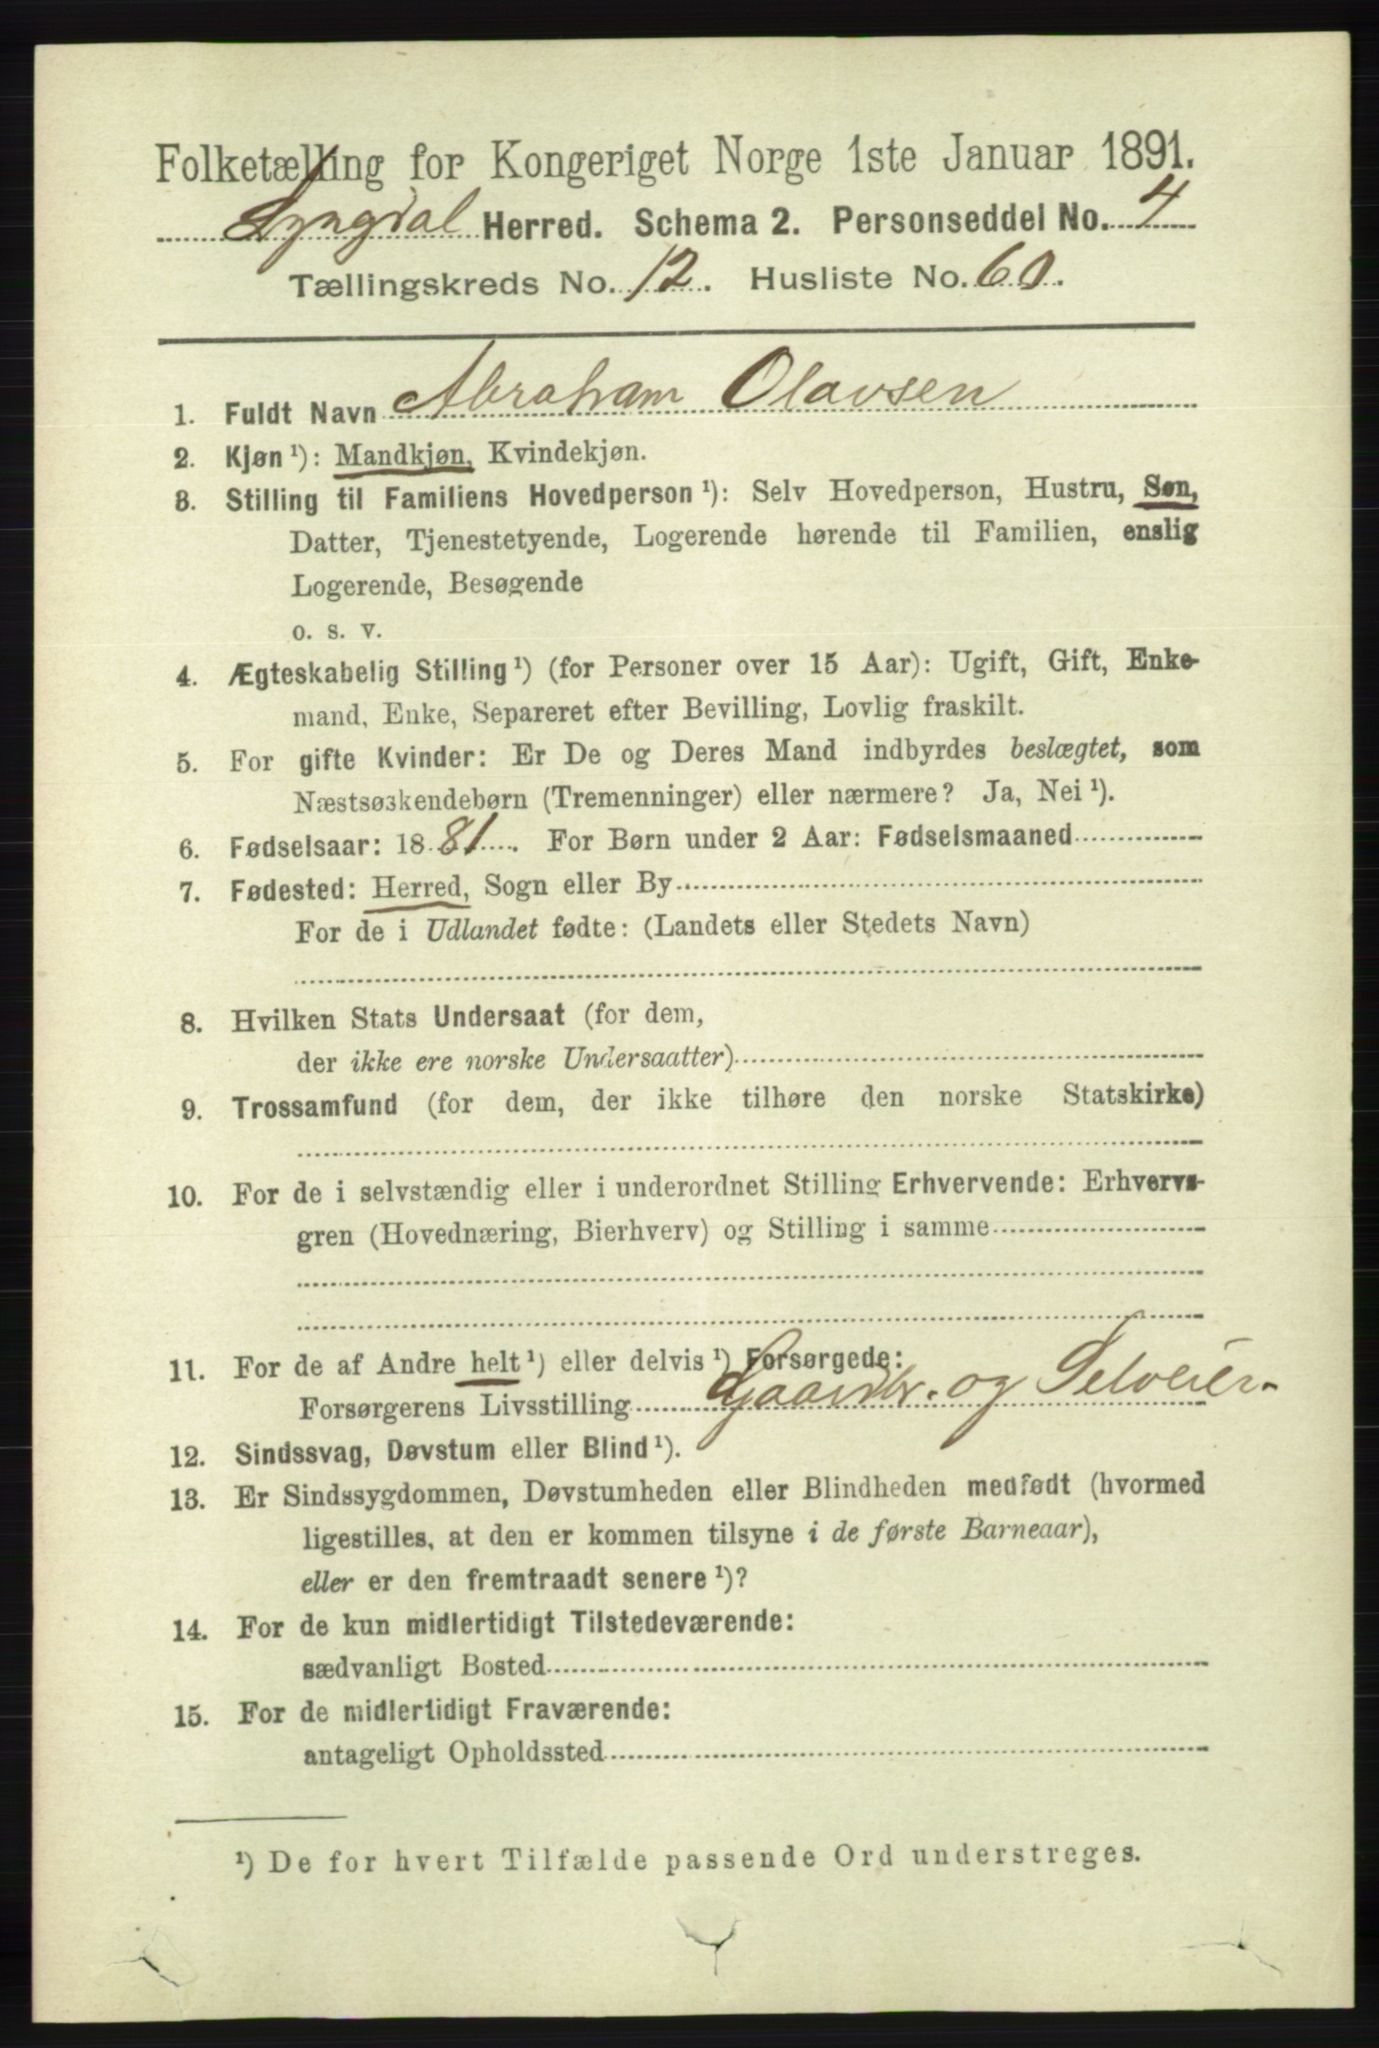 Folketælling for Kongeriget Norge 1ste Januar 1891.
Lyngdal Herred. Schema 2. Personseddel No. 4
Tællingskreds No. 12. Husliste No. 60.
1. Fuldt Navn Abraham Olavsen
2. Kjøn ¹): Mandkjøn, Kvindekjøn.
3. Stilling til Familiens Hovedperson ¹): Selv Hovedperson, Hustru, Søn,
Datter, Tjenestetyende, Logerende hørende til Familien, enslig
Logerende, Besøgende
o. s. v.
4. Ægteskabelig Stilling ¹) (for Personer over 15 Aar): Ugift, Gift, Enke-
mand, Enke, Separeret efter Bevilling, Lovlig fraskilt.
5. For gifte Kvinder: Er De og Deres Mand indbyrdes beslægtet, som
Næstsøskendebørn (Tremenninger) eller nærmere? Ja, Nei ¹).
6. Fødselsaar: 1881. For Børn under 2 Aar: Fødselsmaaned
7. Fødested: Herred, Sogn eller By
For de i Udlandet fødte: (Landets eller Stedets Navn)
8. Hvilken Stats Undersaat (for dem,
der ikke ere norske Undersaatter)
9. Trossamfund (for dem, der ikke tilhøre den norske Statskirke)
10. For de i selvstændig eller i underordnet Stilling Erhvervende: Erhvervs-
gren (Hovednæring, Bierhverv) og Stilling i samme
11. For de af Andre helt ¹) eller delvis ¹) Forsørgede:
Forsørgerens Livsstilling Gaardbr. og Selveier-
12. Sindssvag, Døvstum eller Blind ¹).
13. Er Sindssygdommen, Døvstumheden eller Blindheden medfødt (hvormed
ligestilles, at den er kommen tilsyne i de første Barneaar),
eller er den fremtraadt senere ¹)?
14. For de kun midlertidigt Tilstedeværende:
sædvanligt Bosted
15. For de midlertidigt Fraværende:
antageligt Opholdssted
¹) De for hvert Tilfælde passende Ord understreges.